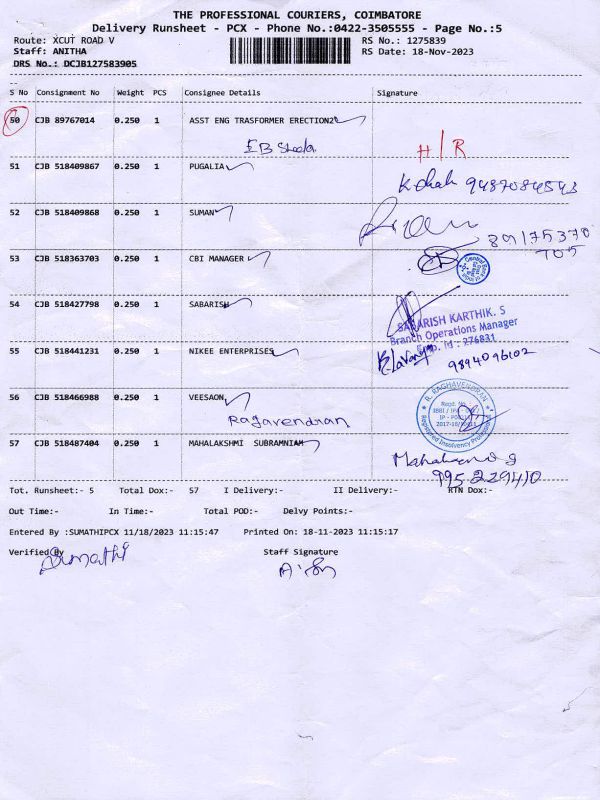 THE PROFESSIONAL COURIERS, COIMBATORE
Delivery Runsheet - PCX - Phone No.:0422-3505555 - Page No.:5
Route: XCUT ROAD V RS No.: 1275839
Staff: ANITHA RS Date: 18-Nov-2023
DRS No.: DCJB127583905
S No Consignment No Weight PCS Consignee Details Signature
50 CJB 89767014 0.250 1 ASST ENG TRASFORMER ERECTION2
EB
H/R
51 CJB 518409867 0.250 1 PUGALIA
9487084543
52 CJB 518409868 0.250 1 SUMAN
89175370
705
53 CJB 518363703 0.250 1 CBI MANAGER
54 CJB 518427798 0.250 1 SABARISH
SABARISH KARTHIK. S
Branch Operations Manager
Emp. Id : 276831
55 CJB 518441231 0.250 1 NIKEE ENTERPRISES
9894096102
56 CJB 518466988 0.250 1 VEESAON
Ragavendran
R. RAGHAVENDRAN
Registered Insolvency Professional
57 CJB 518487404 0.250 1 MAHALAKSHMI SUBRAMNIAM
Tot. Runsheet:- 5 Total Dox:- 57 I Delivery:- II Delivery:- RTN Dox:-
Out Time:- In Time:- Total POD:- Delvy Points:-
Entered By :SUMATHIPCX 11/18/2023 11:15:47 Printed On: 18-11-2023 11:15:17
Verified By Staff Signature
Sumathi